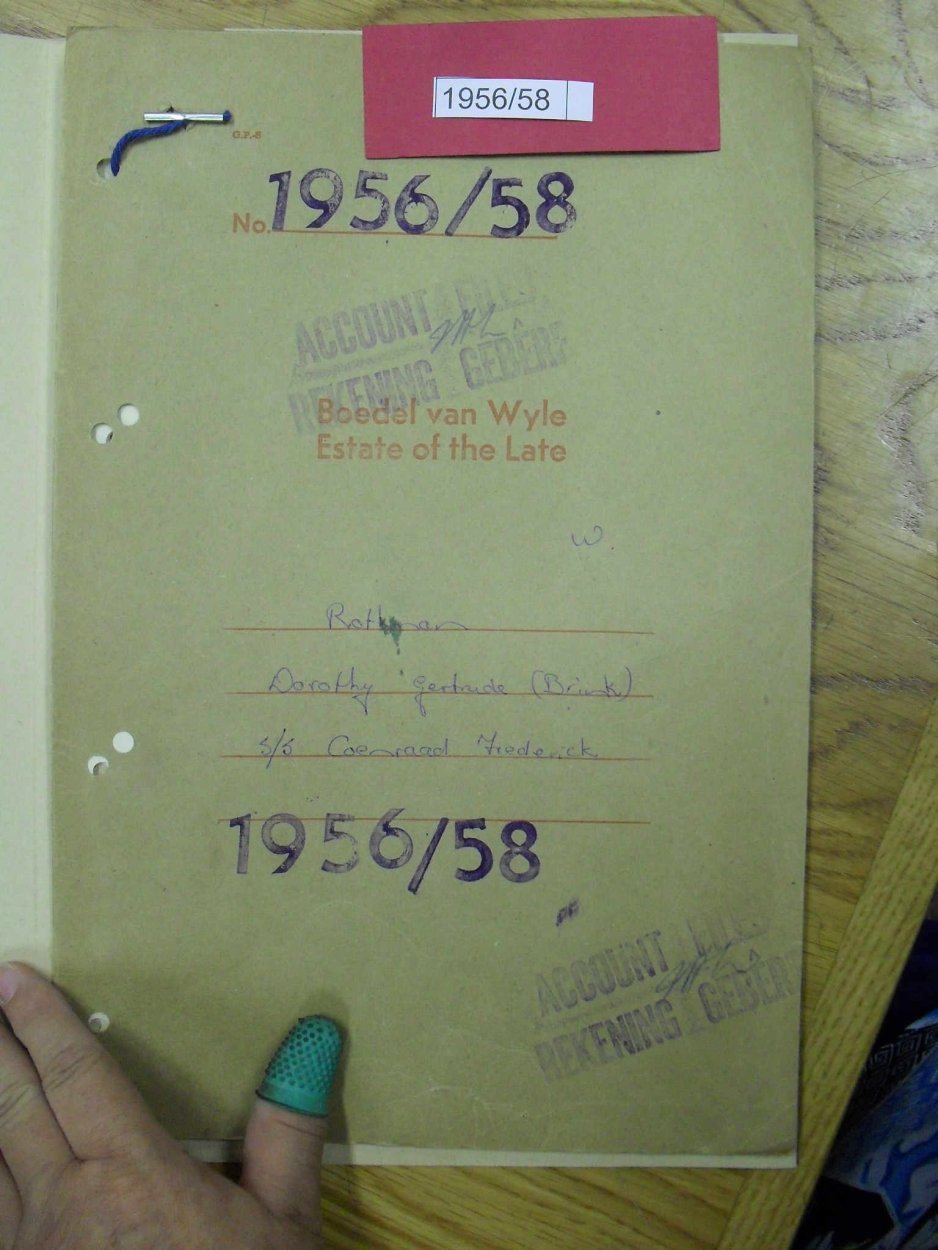 1956/58
G.P.-S
No. 1956/58
ACCOUNT FILED
REKENING GEBÊRE
Boedel van Wyle
Estate of the Late
W.
Rothman
Dorothy Gertrude (Brink)
s/s Coenraad Frederick
1956/58
ACCOUNT FILED
REKENING GEBÊR